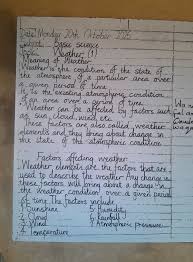 Date: Monday 20th October 2025
Subject: Basic science
Topic: Weather (1)
Meaning of Weather
Weather is the condition of the state of
the atmosphere of a particular area over
a given period of time
is the existing atmospheric condition
of an area over a period of time.
Weather can be affected by factors such
as sun, cloud, wind etc.
These factors are also called weather
elements and they bring about change in
the state of the atmospheric condition

Factors affecting weather
Weather elements are the factors that
are used to describe the weather. Any change in
these factors will bring about a change in
the weather condition over a given period
of time. The factors include
1 Sunshine 5 Humidity
2 Cloud 6 Rainfall
3 Wind 7 Atmospheric pressure
4 Temperature